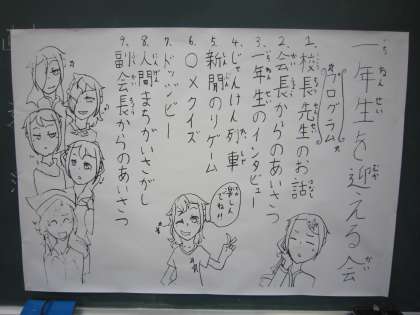 一年生を迎える会
プログラム
1.校長先生のお話
2.会長からのあいさつ
3.一年生のインタビュー
4.じゃんけん列車
5.新聞のりゲーム
6.○×クイズ
7.ドッヂビー
8.人間まちがいさがし
9.副会長からのあいさつ
楽しんでね!!